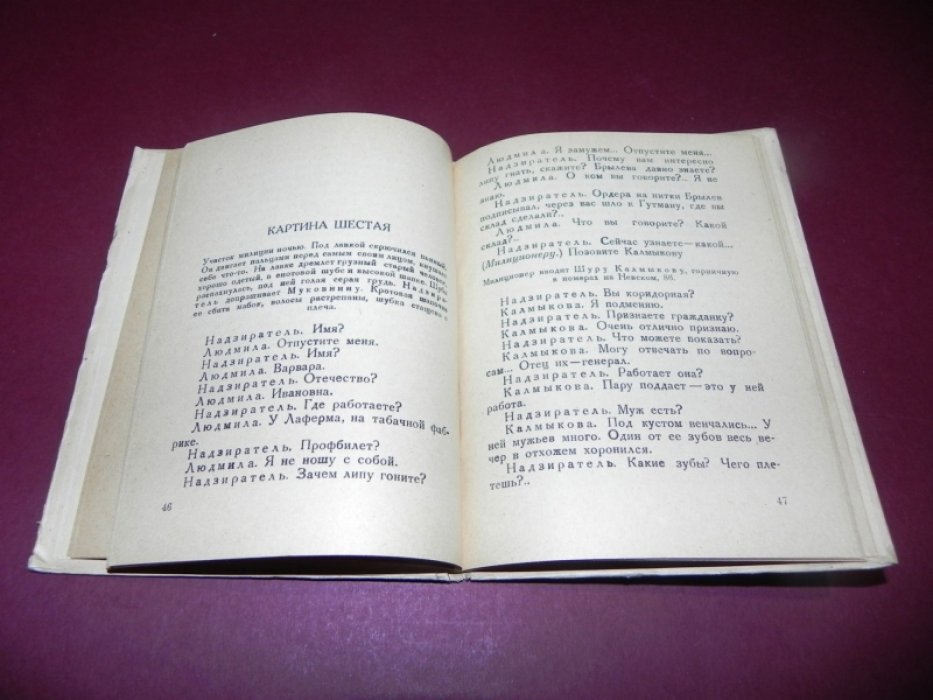 КАРТИНА ШЕСТАЯ
Участок милиции ночью. Под лавкой скрючился пьяный.
Он двигает пальцами перед самым своим лицом, внушает
себе что-то. На лавке дремлет грузный старый человек,
хорошо одетый, в енотовой шубе и высокой шапке. Шуба
распахнулась, под ней голая серая грудь. Надзира-
тель допрашивает Муковнину. Кротовая шапочка
ее сбита набок, волосы растрепаны, шубка стащена с
плеча.
Надзиратель. Имя?
Людмила. Отпустите меня.
Надзиратель. Имя?
Людмила. Варвара.
Надзиратель. Отечество?
Людмила. Ивановна.
Надзиратель. Где работаете?
Людмила. У Лаферма, на табачной фаб-
рике.
Надзиратель. Профбилет?
Людмила. Я не ношу с собой.
Надзиратель. Зачем липу гоните?
46
Людмила. Я замужем... Отпустите меня...
Надзиратель. Почему вам интересно
липу гнать, скажите? Брылева давно знаете?
Людмила. О ком вы говорите?.. Я не
знаю.
Надзиратель. Ордера на нитки Брылев
подписывал, через вас шло к Гутману, где вы
склад сделали?..
Людмила. Что вы говорите? Какой
склад?..
Надзиратель. Сейчас узнаете—какой...
(Милиционеру.) Позовите Калмыкову
Милиционер вводит Шуру Калмыкову, горничную
в номерах на Невском, 86.
Надзиратель. Вы коридорная?
Калмыкова. Я подменяю.
Надзиратель. Признаете гражданку?
Калмыкова. Очень отлично признаю.
Надзиратель. Что можете показать?
Калмыкова. Могу отвечать по вопро-
сам... Отец их—генерал.
Надзиратель. Работает она?
Калмыкова. Пару поддает—это у ней
работа.
Надзиратель. Муж есть?
Калмыкова. Под кустом венчались... У
ней мужьев много. Один от ее зубов весь ве-
чер в отхожем хоронился.
Надзиратель. Какие зубы? Чего пле-
тешь?..
47